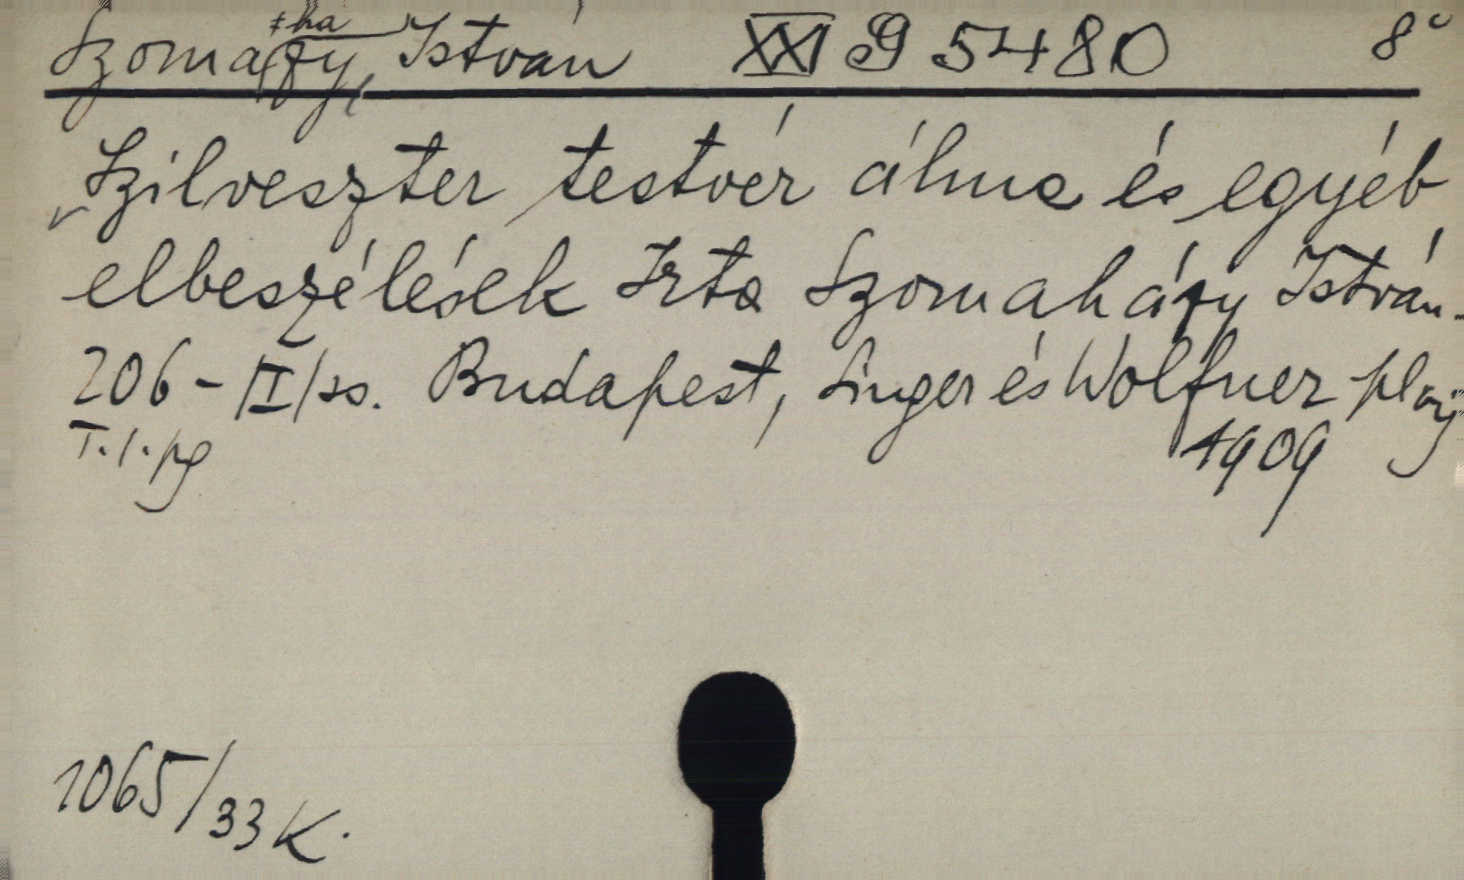 Szomaházy, István XXI 9 5480 8°
Szilveszter testvér álma és egyéb
elbeszélések Irta Szomaházy István.
206 - /II/ss. Budapest, Singer és Wolfner
T. l. pg 1909
1065/33 K.